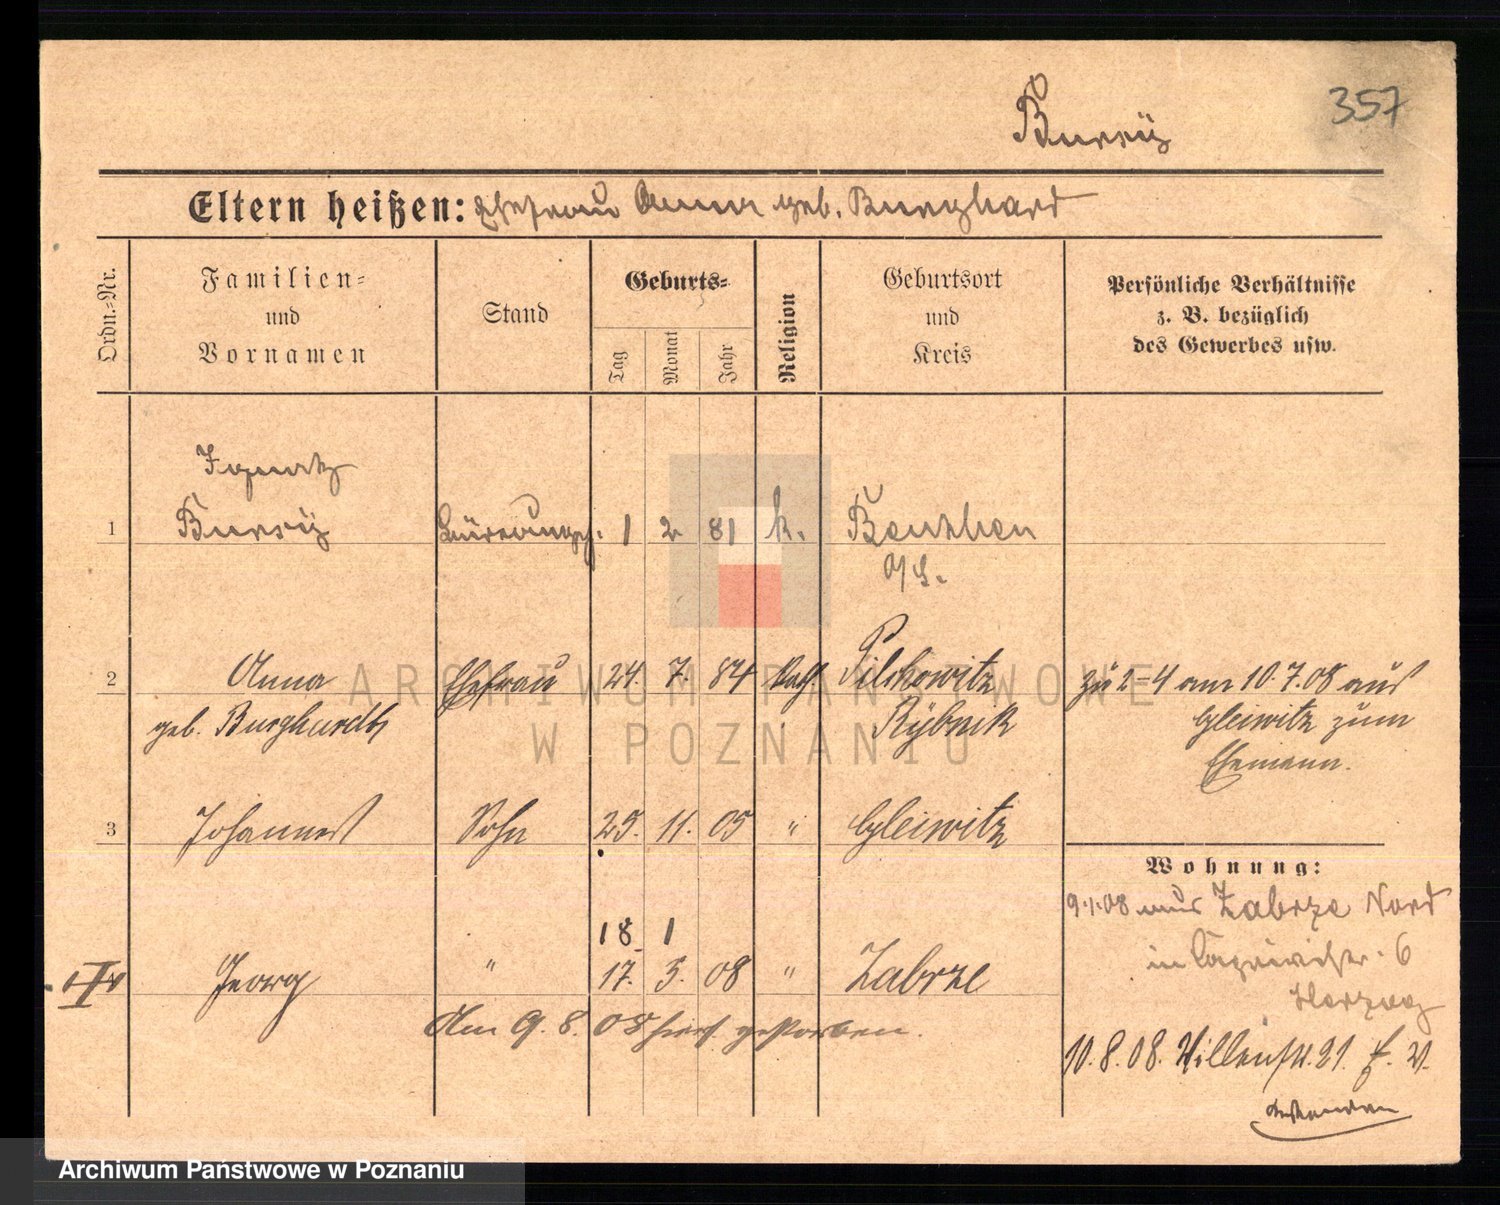 357
Bursÿ
Eltern heißen: Ehefrau Anna geb. Burghard
Ordn.-Nr.
Familien- und Vornamen
Stand
Geburts-
Tag
Monat
Jahr
Religion
Geburtsort und Kreis
Persönliche Verhältnisse
z. B. bezüglich
des Gewerbes usw.
Ignatz
1 Bursÿ 1 2 81 k. Beuthen
O/S.
2 Anna Ehefrau 24. 7. 84 Kath. Pilchowitz zu 2=4 am 10.7.08 aus
geb. Burghardt Rybnik Gleiwitz zum
Ehemann.
3 Johannes Sohn 25. 11. 05 " Gleiwitz
Wohnung:
9.1.08 aus Zabrze Nord
18. 1
in 6
Georg " 17. 3. 08 " Zabrze
Herzog
Am 9. 8. 08 hier gestorben.
10.8.08. 21.
ARCHIWUM PAŃSTWOWE
W POZNANIU
Archiwum Państwowe w Poznaniu